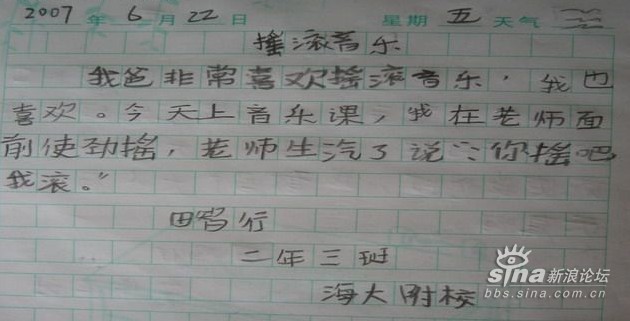 2007 年 6 月 22 日 星期 五 天气
摇滚音乐
我爸非常喜欢摇滚音乐，我也
喜欢。今天上音乐课，我在老师面
前使劲摇，老师生汽了说：“你摇吧
我滚。”
田智行
二年三班
海大附校
sina 新浪论坛
bbs.sina.com.cn